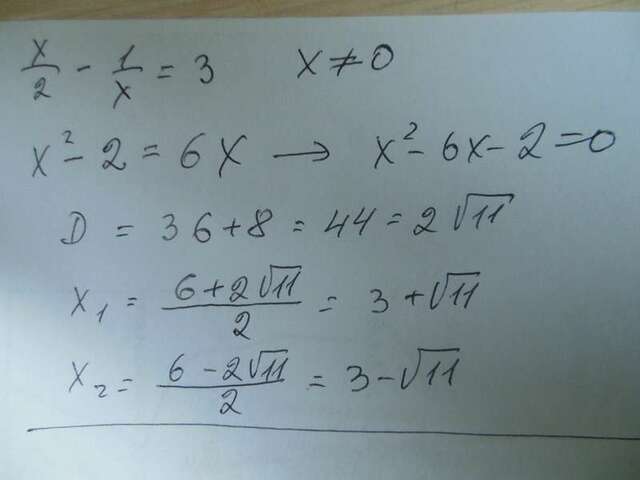 x/2 - 1/x = 3    x ≠ 0
x² - 2 = 6x → x² - 6x - 2 = 0
D = 36 + 8 = 44 = 2√11
x₁ = (6 + 2√11)/2 = 3 + √11
x₂ = (6 - 2√11)/2 = 3 - √11